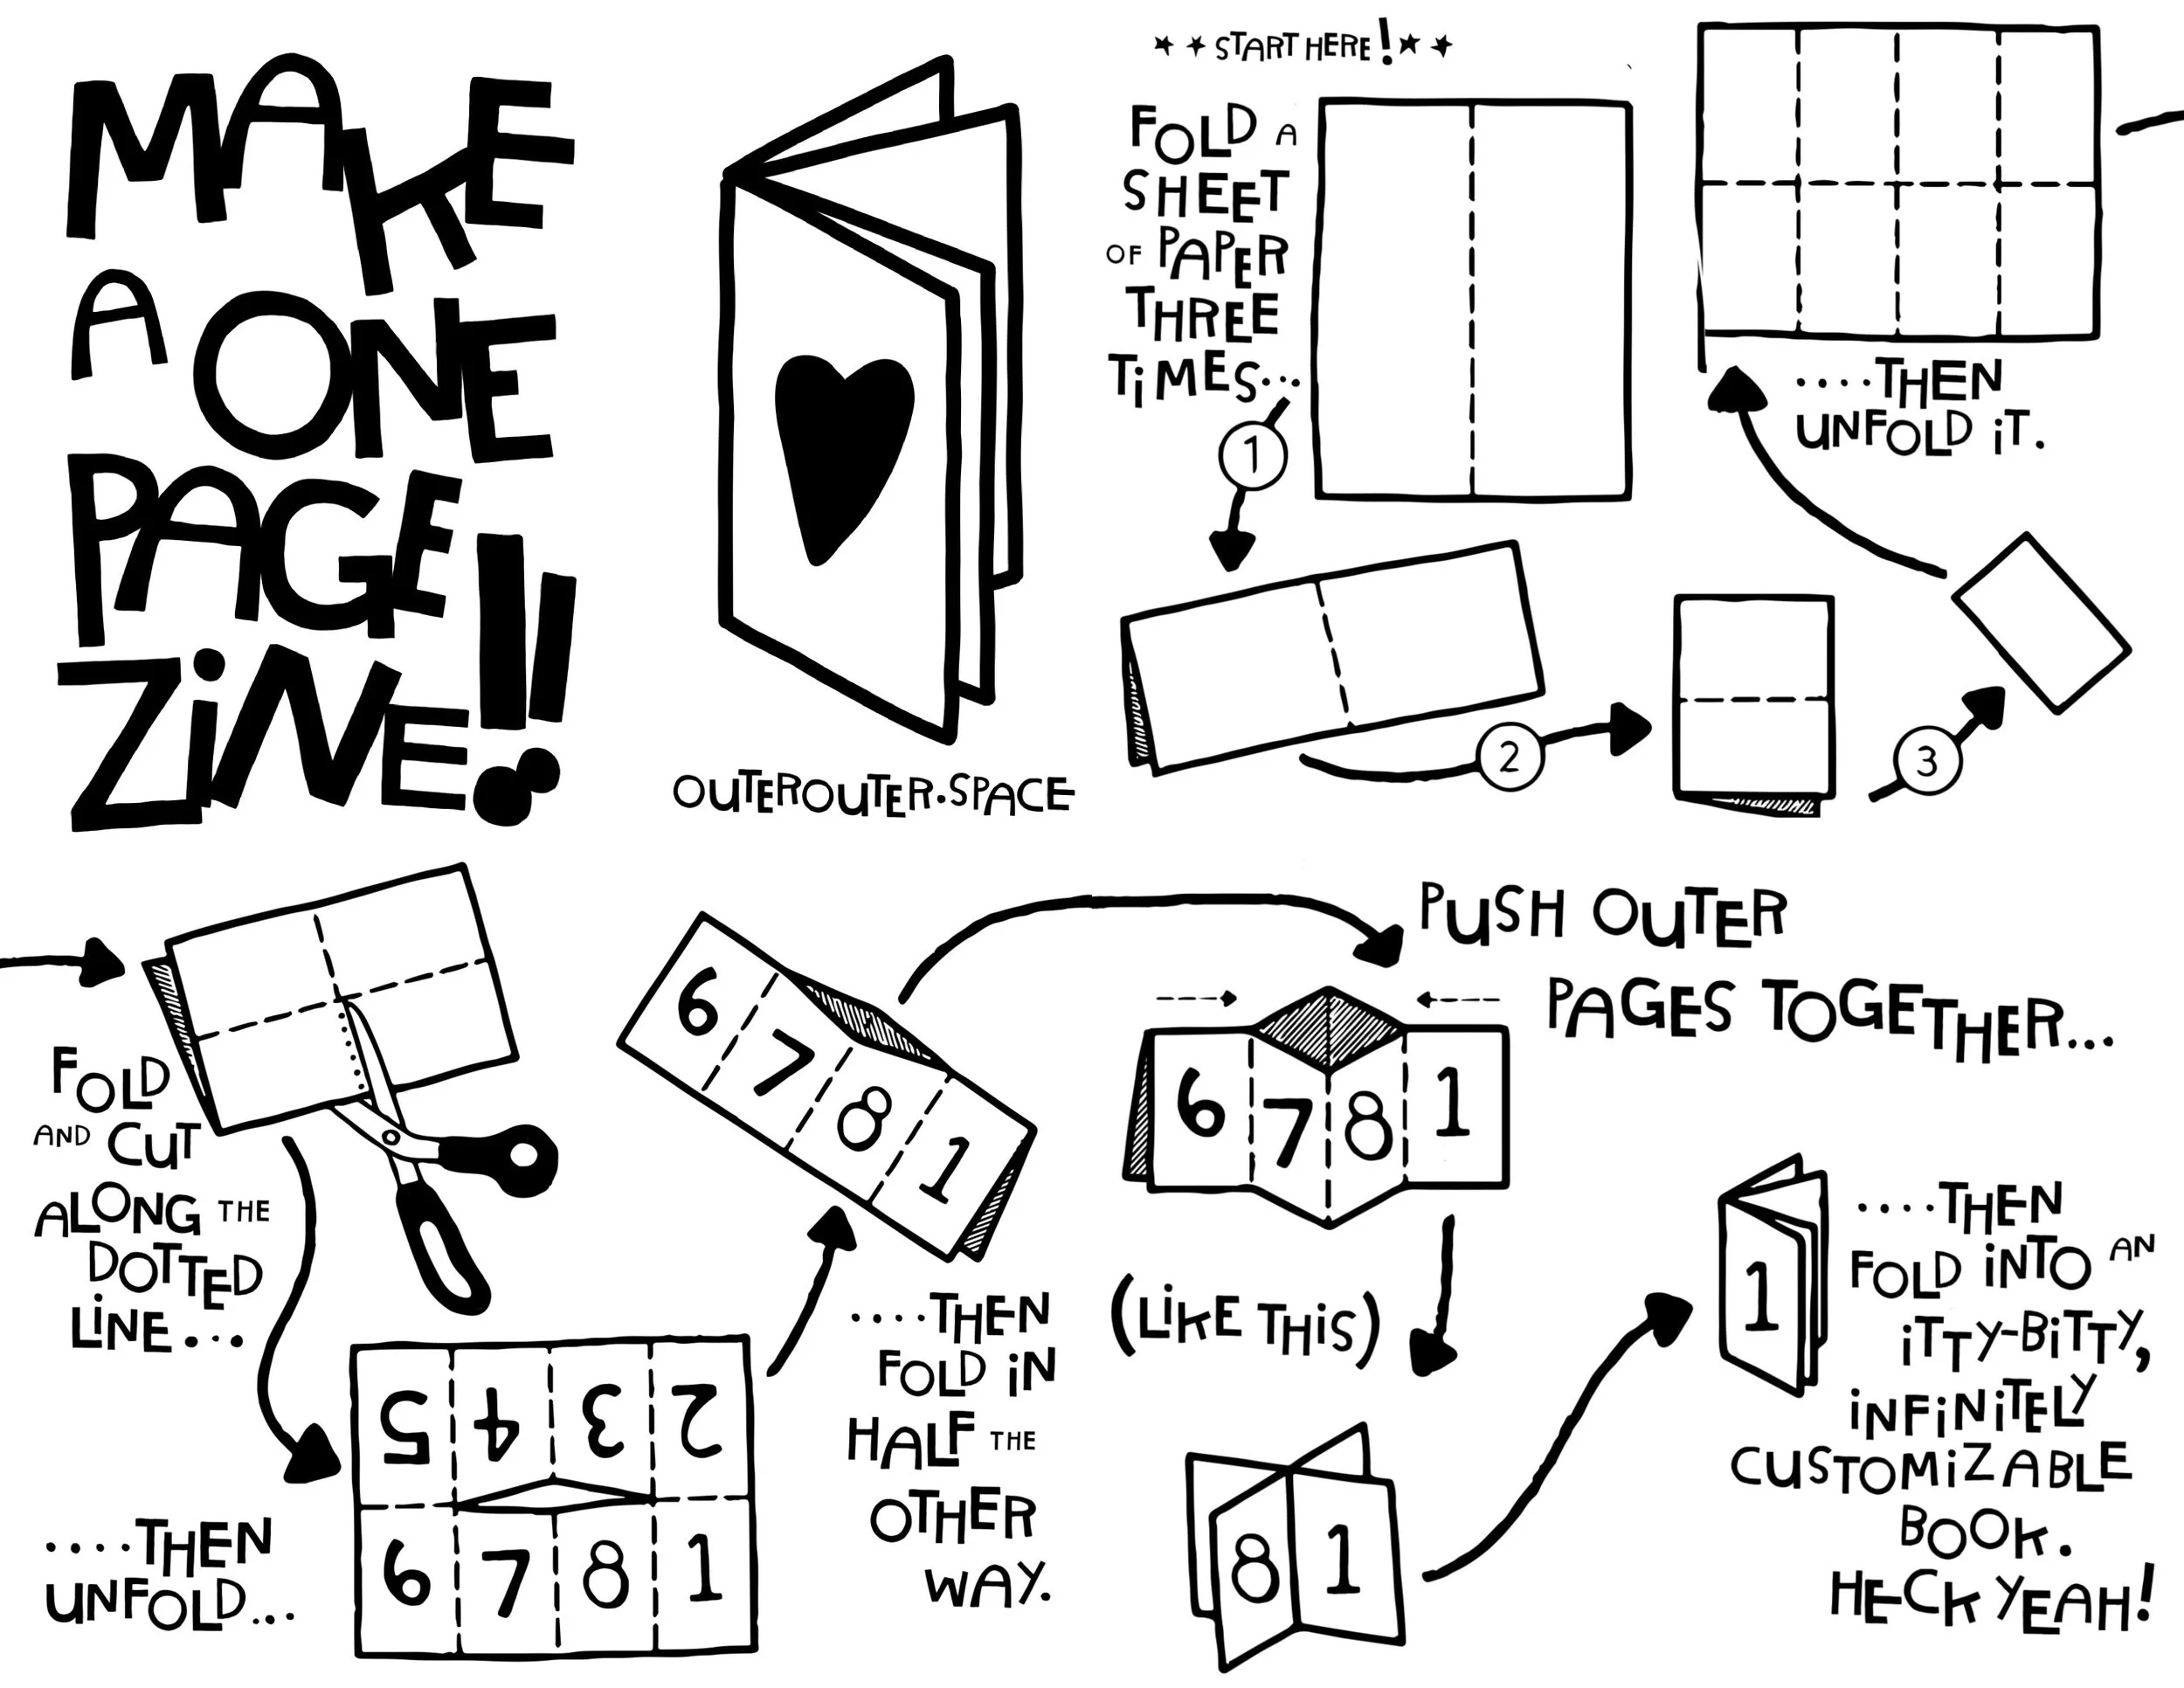 MAKE
A ONE
PAGE
ZiNE!!
OUTEROUTER.SPACE
START HERE!
FOLD A
SHEET
OF PAPER
THREE
TiMES...
1
2
3
....THEN
UNFOLD iT.
FOLD
AND CUT
ALONG THE
DOTTED
LINE...
....THEN
UNFOLD...
5 4 3 2
6 7 8 1
....THEN
FOLD iN
HALF THE
OTHER
WAY.
6 7 8 1
PUSH OUTER
PAGES TOGETHER...
6 7 8 1
(LiKE THiS)
8 1
1
....THEN
FOLD iNTO AN
iTTY-BiTTY,
iNFiNiTELY
CUSTOMiZABLE
BOOK.
HECK YEAH!